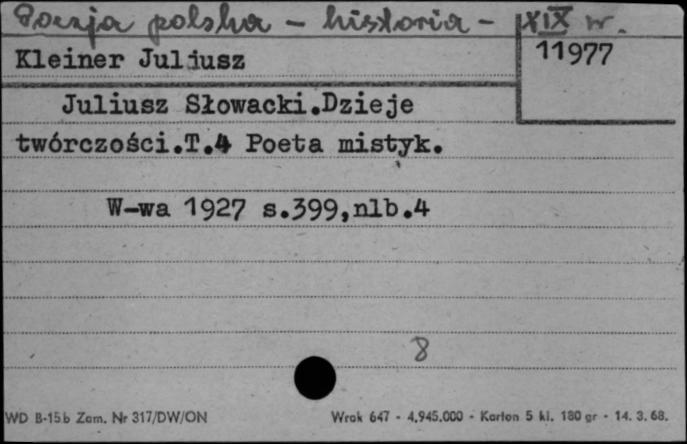 Poezja polska - historia - XIX w.
Kleiner Juljusz
11977
Juliusz Słowacki.Dzieje
twórczości.T.4 Poeta mistyk.
W-wa 1927 s.399,nlb.4
8
WD B-15b Zam. Nr 317/DW/ON
Wrak 647 - 4.945.000 - Karton 5 kl. 180 gr - 14. 3. 68.